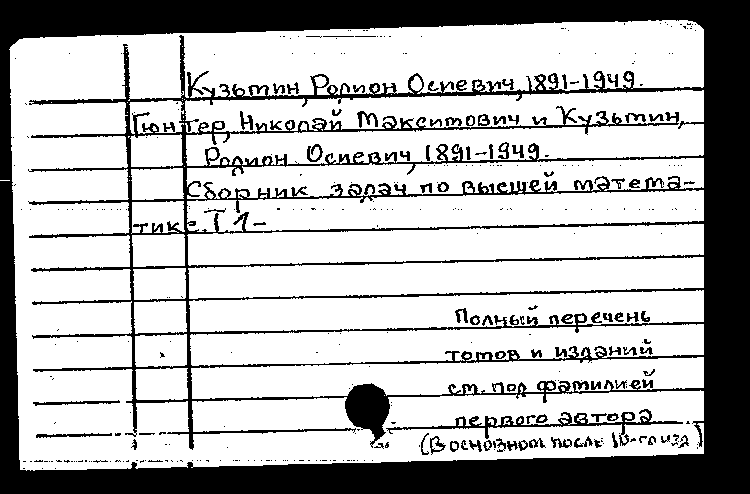 Кузьмин, Родион Осиевич, 1891-1949.
Гюнтер, Николай Максимович и Кузьмин,
Родион Осиевич, 1891-1949.
Сборник задач по высшей матема-
тике. Т 1-
Полный перечень
томов и изданий
см. под фамилией
первого автора
(В основном после 10-го изд)